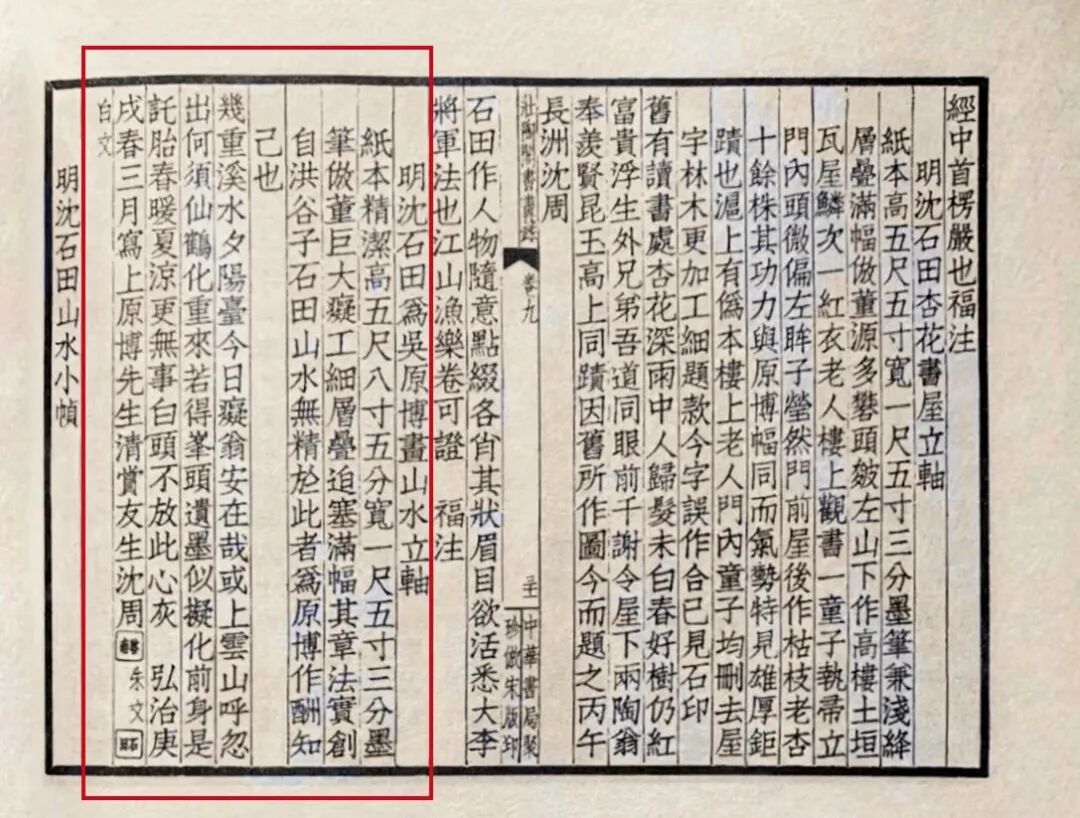 經中首楞嚴也福注
明沈石田杏花書屋立軸
紙本高五尺五寸寬一尺五寸三分墨筆兼淺絳
層疊滿幅倣董源多礬頭皴左山下作高樓土垣
瓦屋鱗次一紅衣老人樓上觀書一童子執帚立
門內頭微偏左眸子瑩然門前屋後作枯枝老杏
十餘株其功力與原博幅同而氣勢特見雄厚鉅
蹟也滬上有僞本樓上老人門內童子均刪去屋
字林木更加工細題款今字誤作合已見石印
舊有讀書處杏花深雨中人歸髮未白春好樹仍紅
富貴浮生外兄弟吾道同眼前千謝令屋下兩陶翁
奉羨賢昆玉高上同蹟因舊所作圖今而題之丙午
長洲沈周
壯陶閣書畫錄
卷九
三十
中華書局聚
珍倣宋版印
石田作人物隨意點綴各肖其狀眉目欲活悉大李
將軍法也江山漁樂卷可證 福注
明沈石田爲吳原博畫山水立軸
紙本精潔高五尺八寸五分寬一尺五寸三分墨
筆倣董巨大癡工細層疊迫塞滿幅其章法實創
自洪谷子石田山水無精於此者爲原博作酬知
己也
幾重溪水夕陽臺今日癡翁安在哉或上雲山呼忽
出何須仙鶴化重來若得峯頭遺墨似擬化前身是
託胎春暖夏涼更無事白頭不放此心灰 弘治庚
戌春三月寫上原博先生清賞友生沈周 朱文 石田
白文
明沈石田山水小幀